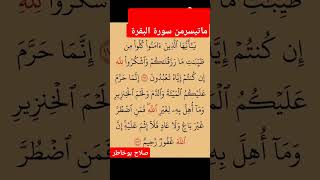 ماتيسرمن سورة البقرة
يَٰٓأَيُّهَا ٱلَّذِينَ ءَامَنُوا۟ كُلُوا۟ مِن
طَيِّبَٰتِ مَا رَزَقْنَٰكُمْ وَٱشْكُرُوا۟ لِلَّهِ
إِن كُنتُمْ إِيَّاهُ تَعْبُدُونَ ۝ إِنَّمَا حَرَّمَ
عَلَيْكُمُ ٱلْمَيْتَةَ وَٱلدَّمَ وَلَحْمَ ٱلْخِنزِيرِ
وَمَآ أُهِلَّ بِهِۦ لِغَيْرِ ٱللَّهِ فَمَنِ ٱضْطُرَّ
غَيْرَ بَاغٍ وَلَا عَادٍ فَلَآ إِثْمَ عَلَيْهِ إِنَّ
ٱللَّهَ غَفُورٌ رَّحِيمٌ ۝
صلاح بوخاطر